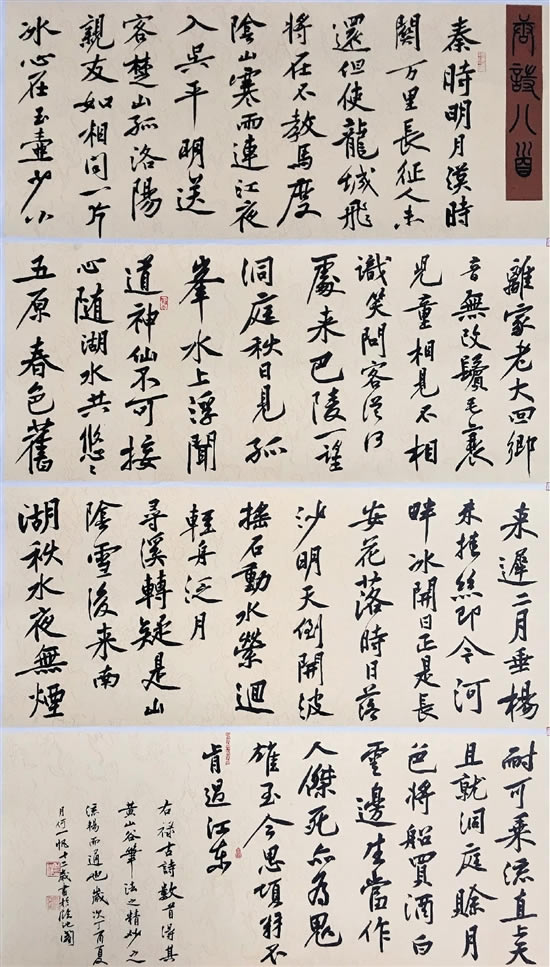 唐詩八首
秦時明月漢時
關万里長征人未
還但使龍城飛
將在不教馬度
陰山寒雨連江夜
入吳平明送
客楚山孤洛陽
親友如相問一片
冰心在玉壺少小
離家老大回鄉
音無改鬢毛衰
兒童相見不相
識笑問客從何
處来巴陵一望
洞庭秋日見孤
峯水上浮聞
道神仙不可接
心随湖水共悠々
五原春色舊
来遲二月垂楊
未掛絲即今河
畔冰開日正是長
安花落時日落
沙明天倒開波
搖石動水縈迴
輕舟泛月
尋溪轉疑是山
陰雪後来南
湖秋水夜無煙
耐可乘流直上天
且就洞庭賒月
色將船買酒白
雲邊生當作
人傑死亦為鬼
雄至今思項羽不
肯過江東
右録古詩數首得其
黄山谷筆法之精妙之
流暢而通也歲次丁酉夏
月何一帆十二歲書於池園